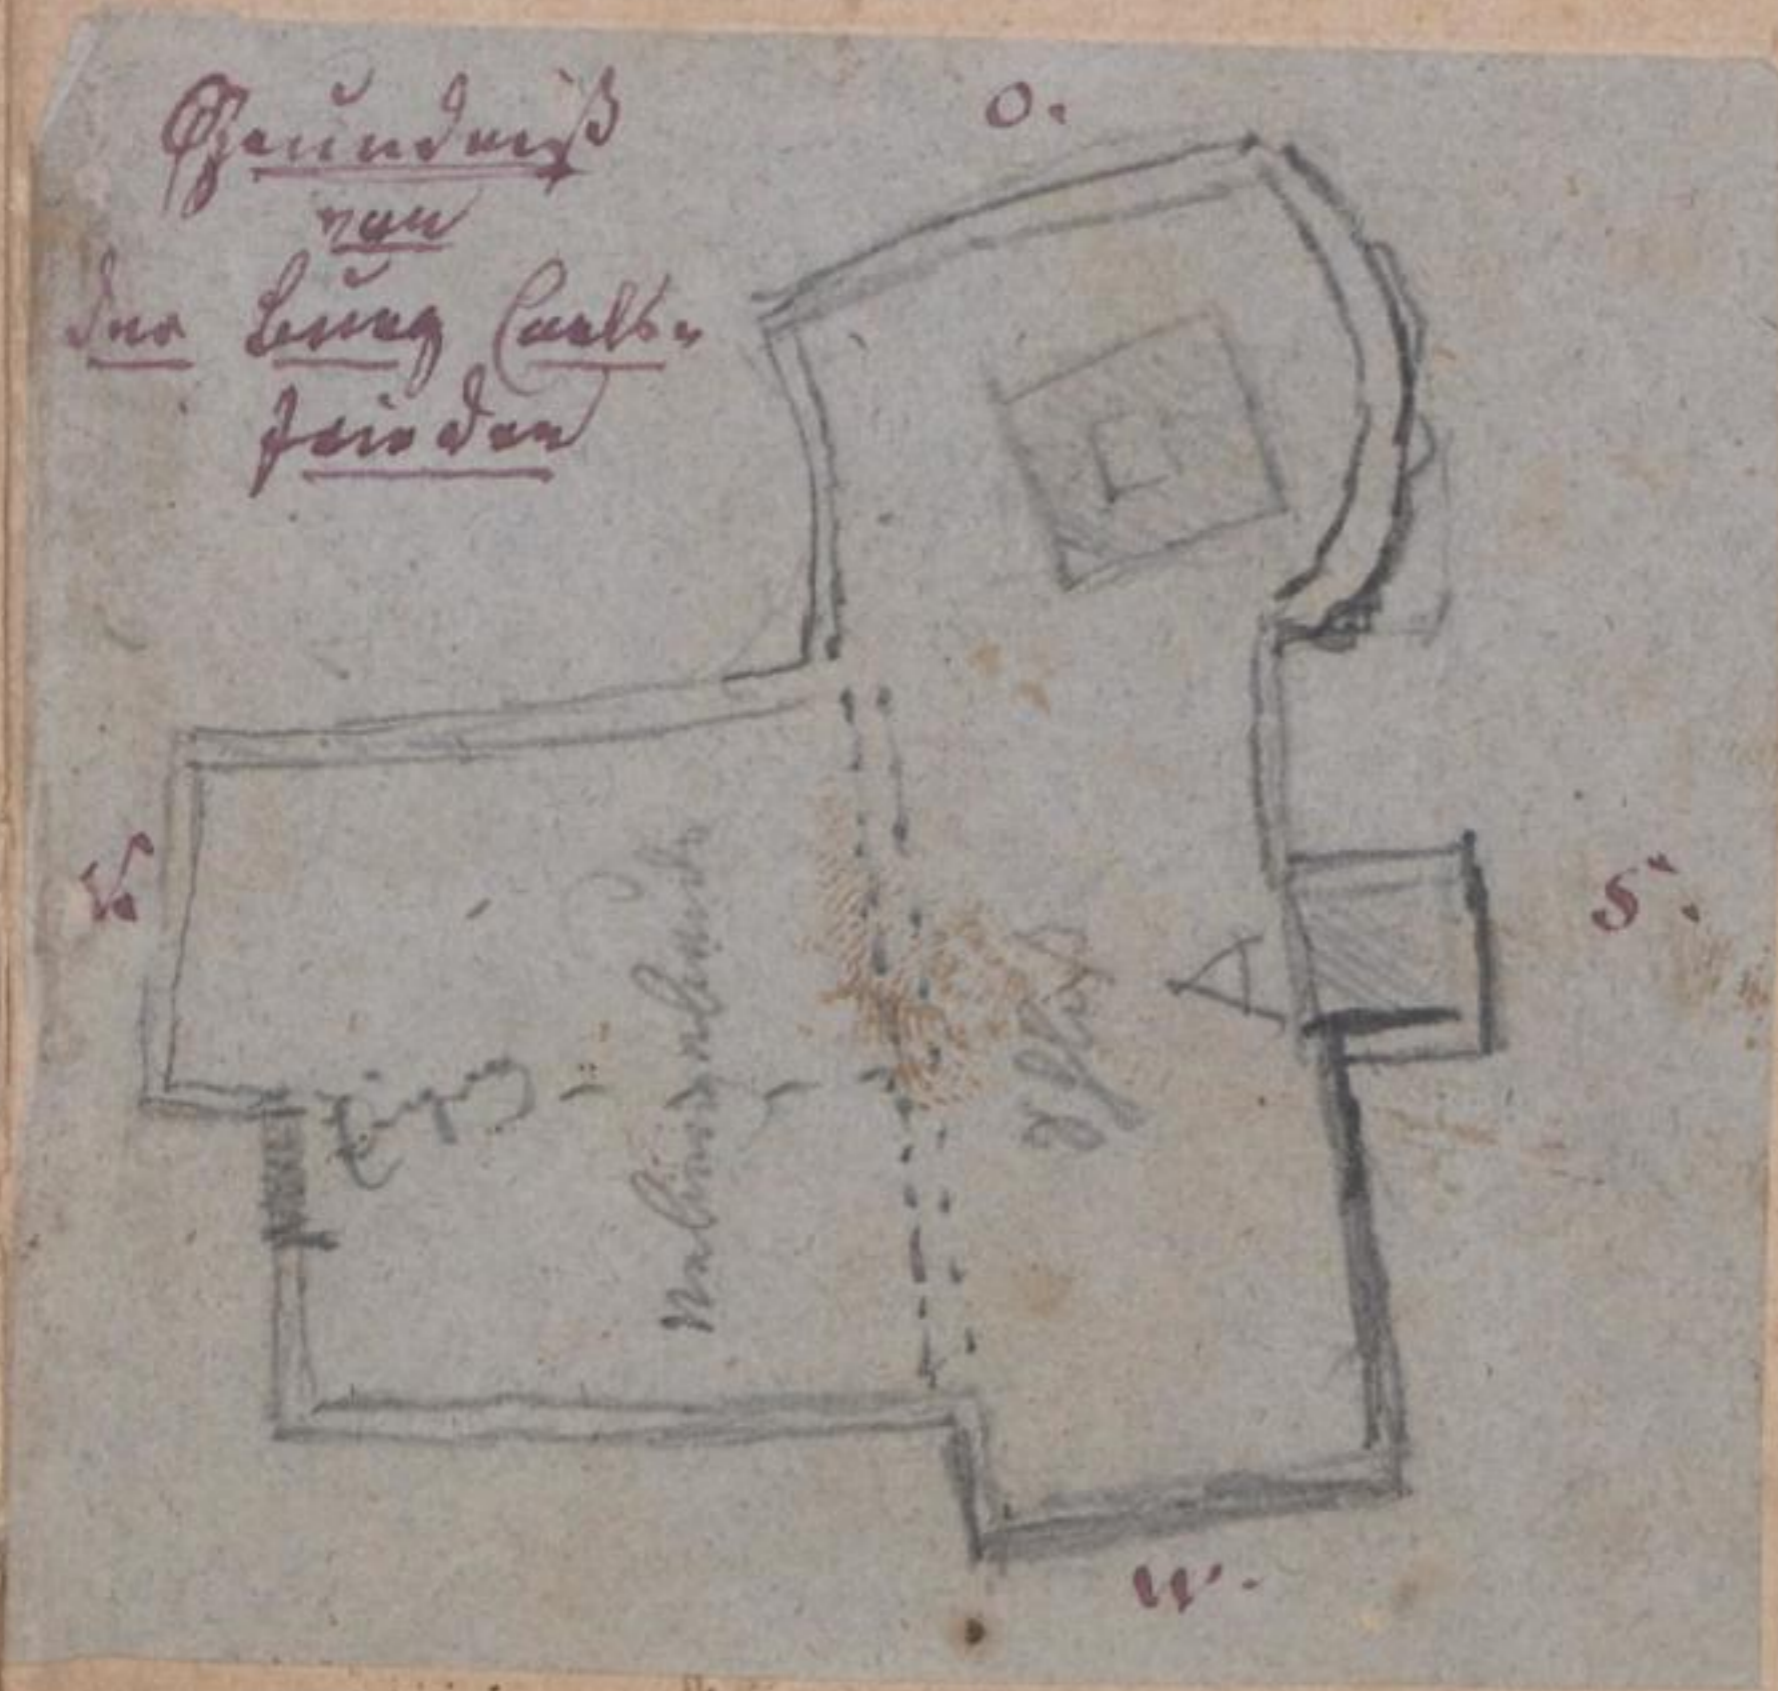 Grundriß
von
der Burg Carls-
frieden
O.
N.
S.
W.
A